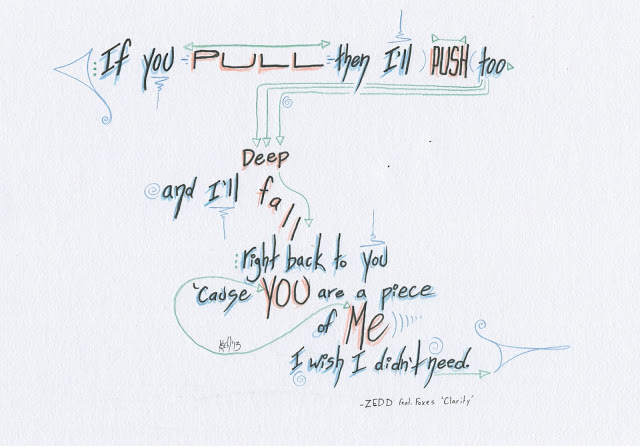 If you PULL then I'll PUSH too
Deep
and I'll fall
right back to you
'Cause YOU are a piece
of Me
I wish I didn't need.
-ZEDD feat. Foxes 'Clarity'